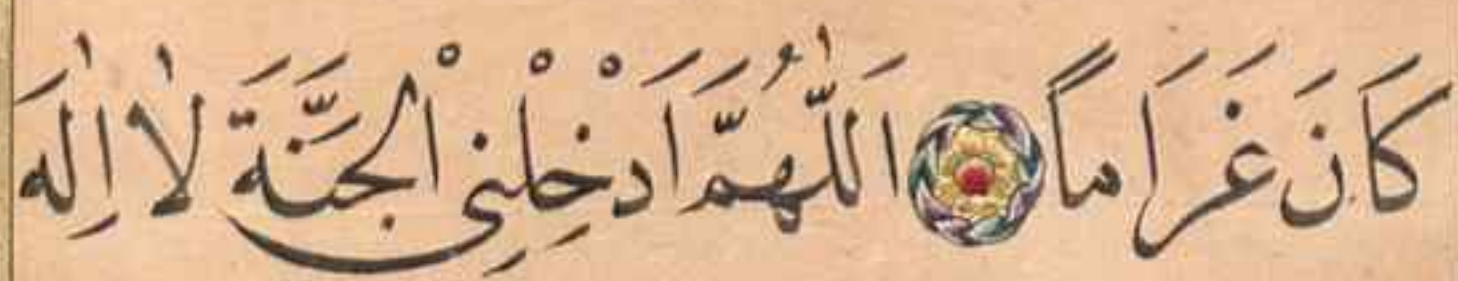 كَانَ غَرَامًا اَللّٰهُمَّ اَدْخِلْنِى الْجَنَّةَ لَا اِلٰهَ